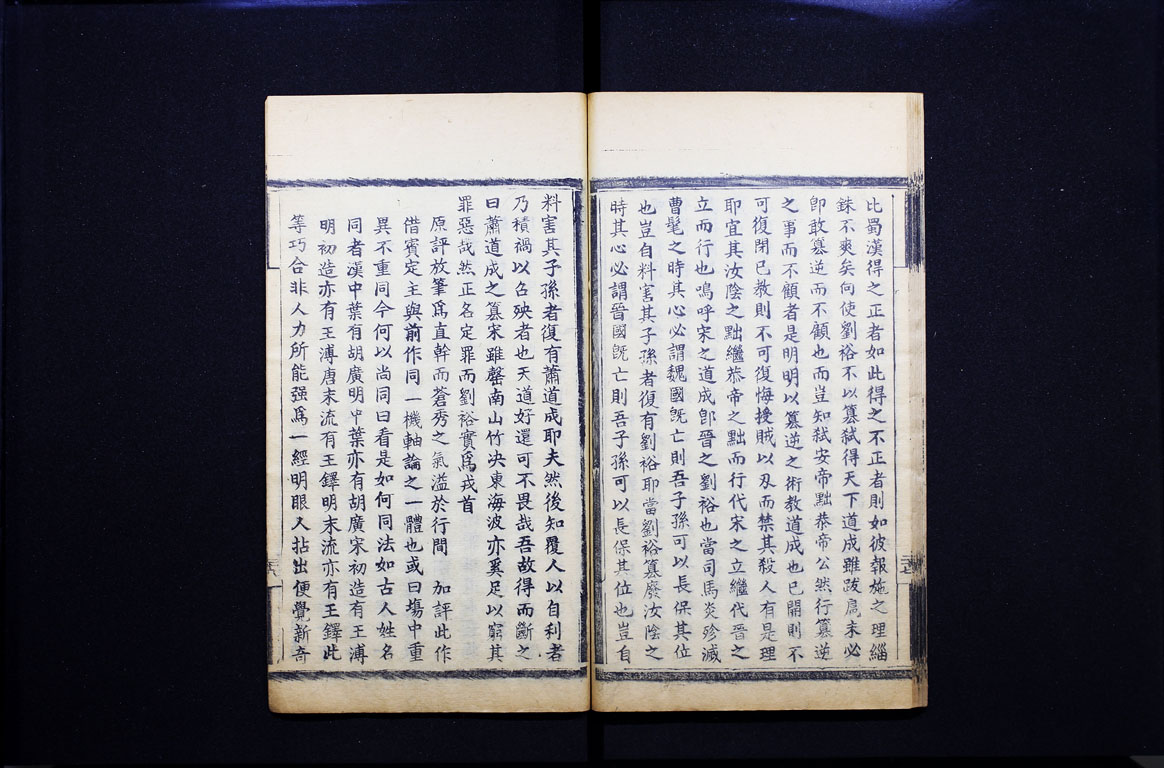 比蜀漢得之正者如此得之不正者則如彼報施之理緇
銖不爽矣向使劉裕不以篡弑得天下道成雖跋扈未必
卽敢篡逆而不顧也而豈知弑安帝黜恭帝公然行篡逆
之事而不顧者是明明以篡逆之術教道成也已開則不
可復閉已教則不可復悔授賊以刄而禁其殺人有是理
耶宜其汝陰之黜繼恭帝之黜而行代宋之立繼代晉之
立而行也嗚呼宋之道成卽晉之劉裕也當司馬炎殄滅
曹髦之時其心必謂魏國旣亡則吾子孫可以長保其位
也豈自料害其子孫者復有劉裕耶當劉裕篡廢汝陰之
時其心必謂晉國旣亡則吾子孫可以長保其位也豈自
料害其子孫者復有蕭道成耶夫然後知覆人以自利者
乃積禍以召殃者也天道好還可不畏哉吾故得而斷之
曰蕭道成之篡宋雖罄南山竹决東海波亦奚足以窮其
罪惡哉然正名定罪而劉裕實爲戎首
原評放筆爲直幹而蒼秀之氣溢於行間 加評此作
借賓定主與前作同一機軸論之一體也或曰塲中重
異不重同今何以尚同曰看是如何同法如古人姓名
同者漢中葉有胡廣明中葉亦有胡廣宋初造有王溥
明初造亦有王溥唐末流有王鐸明末流亦有王鐸此
等巧合非人力所能强爲一經明眼人拈出便覺新奇